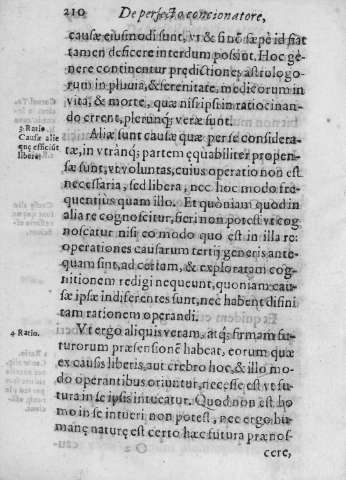 210
De perfecto concionatore,
causæ eiusmodi sunt, vt & si nō sæpè id fiat
tamen deficere interdum possint. Hoc gē
nere continentur prędictiones astrologo
rum in pluuia, & serenitate, medicorum in
vita, & morte, quæ nisi ipsi in ratiocinan-
do errent, plerunq; veræ sunt.
3. Ratio
Causæ alie
enę efficiūt
liberæ.
Aliæ sunt causæ quæ per se considera-
tæ, in vtranq; partem ęquabiliter propen-
sæ sunt, vt voluntas, cuius operatio non est
necessaria, sed libera, nec hoc modo fre-
quentiùs quam illo. Et quòniam quod in
alia re cognoscitur, fieri non potest vt cog
noscatur nisi eo modo quo est in illa re:
operationes causarum tertij generis ante-
quam sint, ad certam, & exploratam cog
nitionem redigi nequeunt, quoniam cau-
sæ ipsæ indiferentes sunt, nec habent difini
tam rationem operandi.
4 Ratio.
Vt ergo aliquis veram, atq; firmam fu-
turorum præsensionē habeat, eorum quæ
ex causis liberis, aut crebro hoc, & illo mo-
do operantibus oriuntur, necesse, est vt fu-
tura in se ipsis intueatur. Quod non est ho
mo in se intueri non potest, nec ergo hu-
manę naturę est certo hæc futura prænos-
cere,